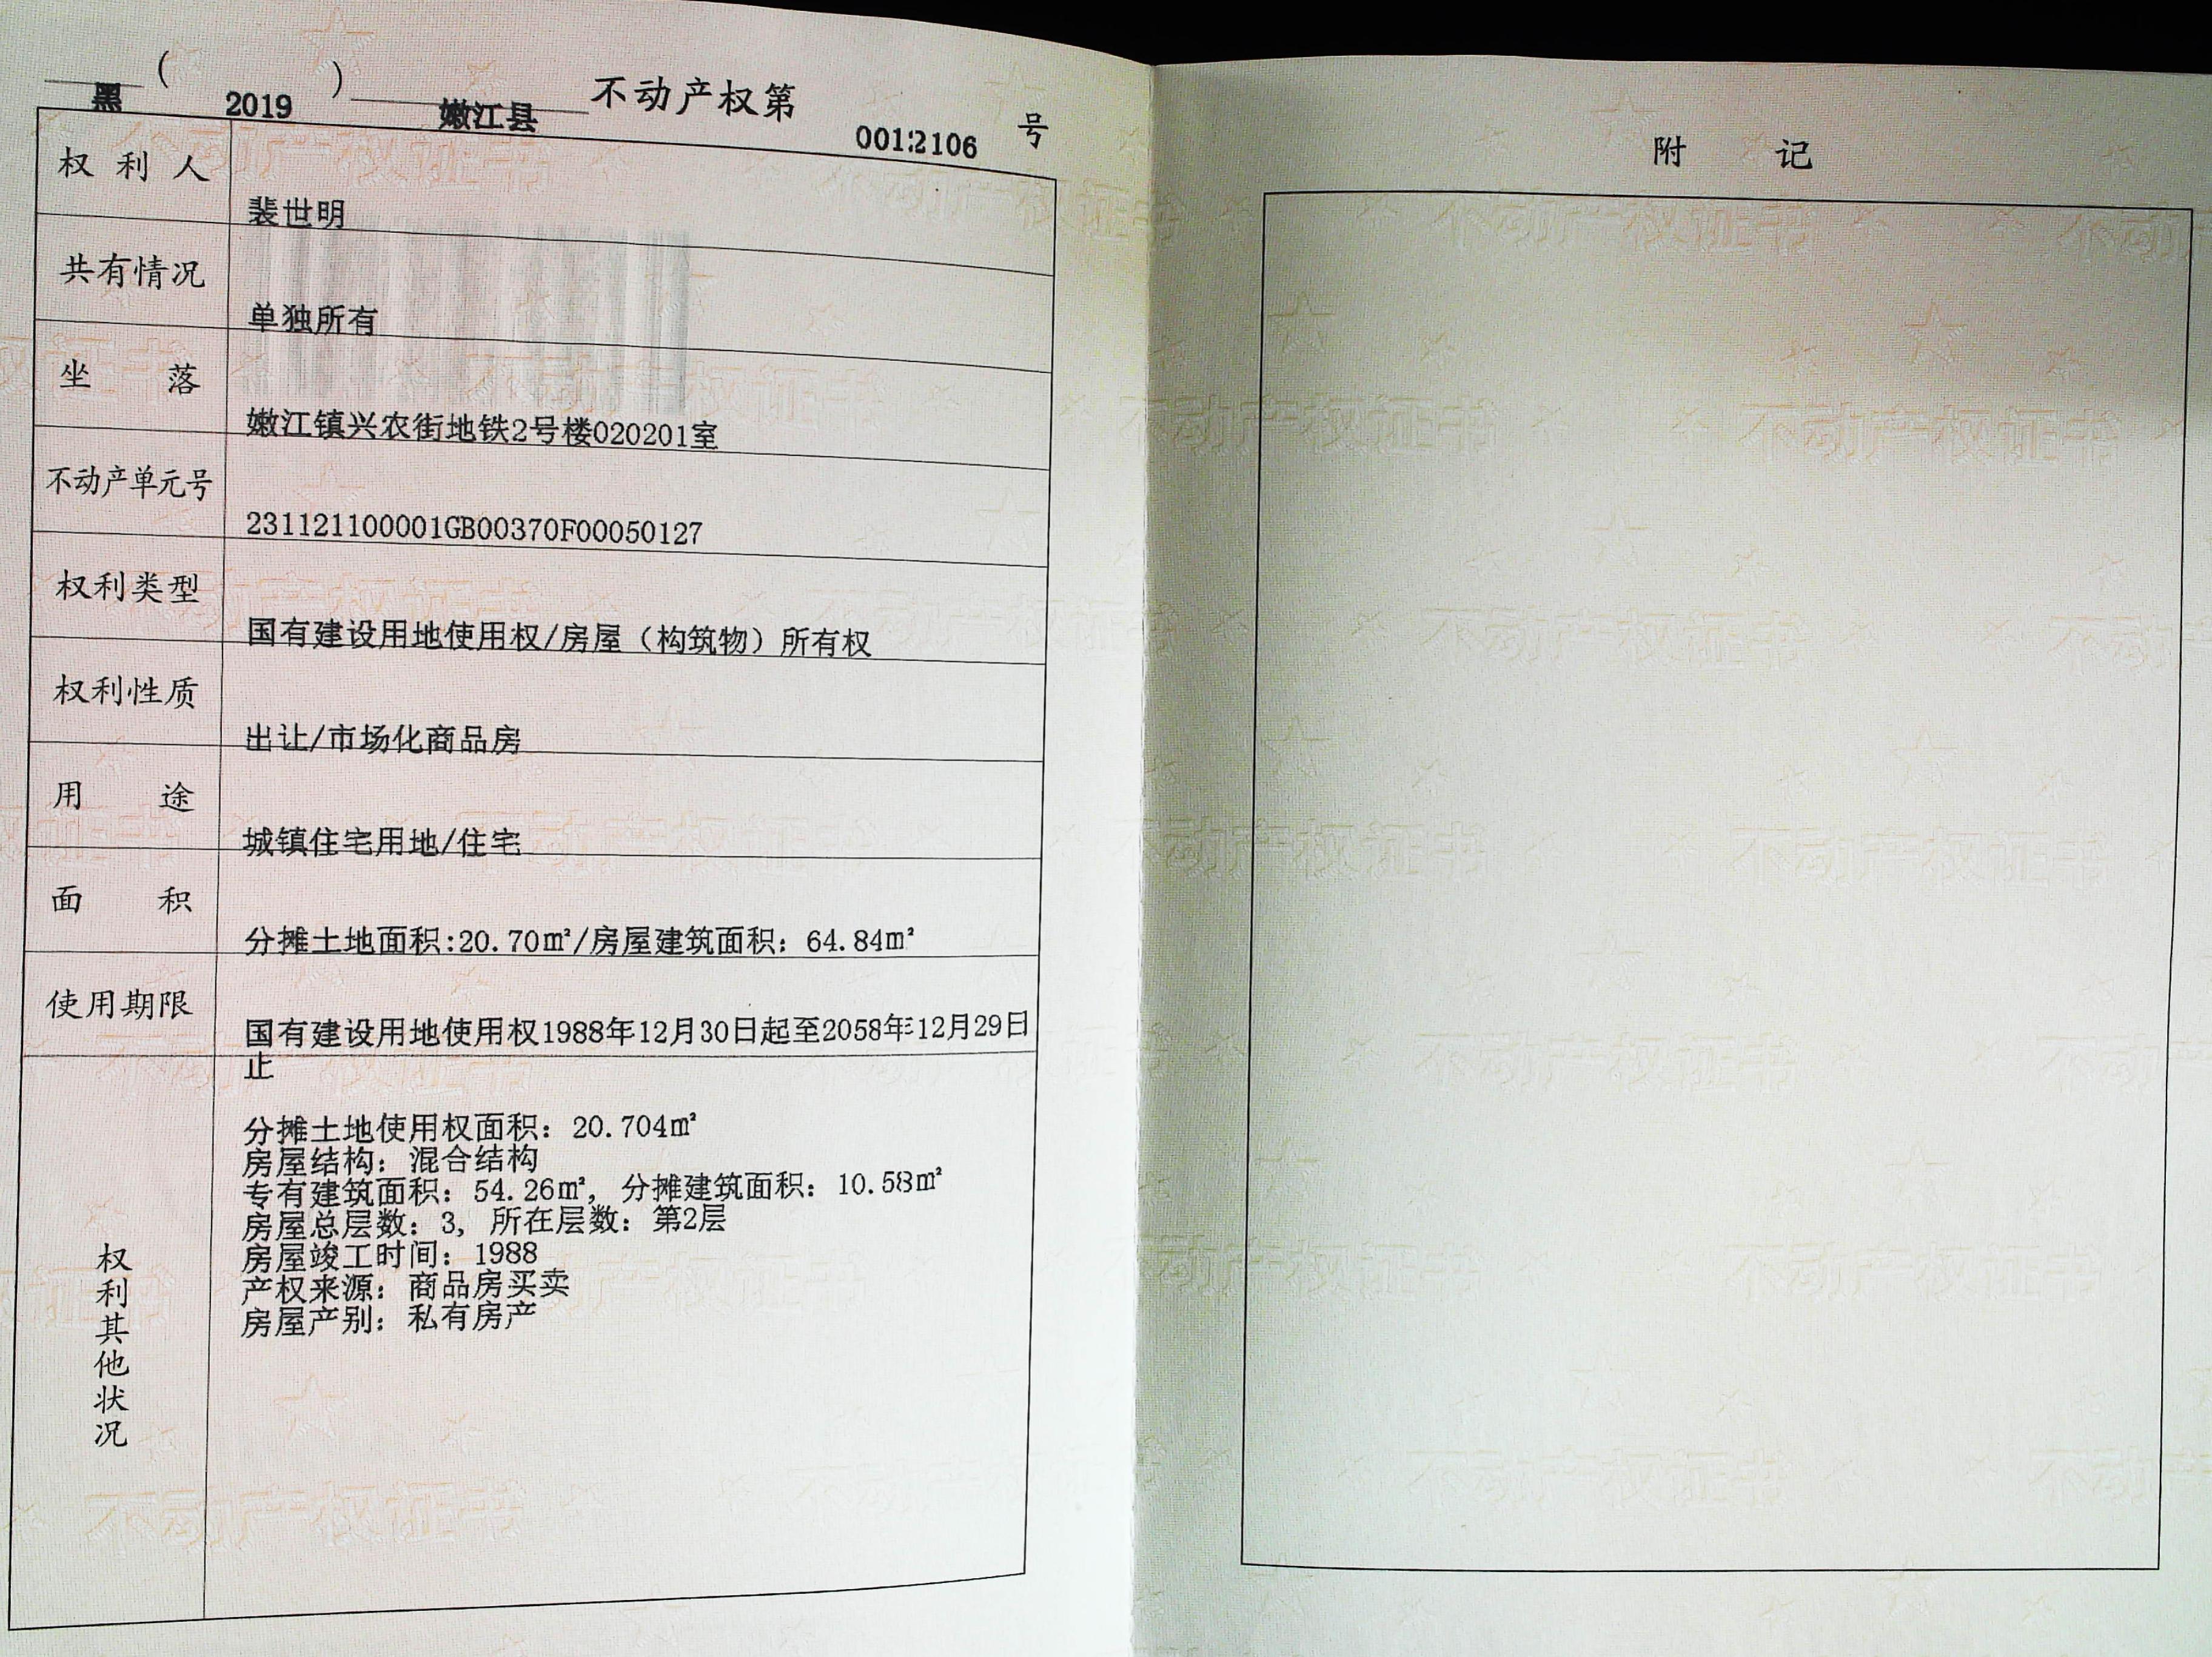 黑（2019）嫩江县不动产权第0012106号
权利人 裴世明
共有情况 单独所有
坐落 嫩江镇兴农街地铁2号楼020201室
不动产单元号 231121100001GB00370F00050127
权利类型 国有建设用地使用权/房屋（构筑物）所有权
权利性质 出让/市场化商品房
用途 城镇住宅用地/住宅
面积 分摊土地面积:20.70㎡/房屋建筑面积：64.84㎡
使用期限 国有建设用地使用权1988年12月30日起至2058年12月29日
止
权利其他状况
分摊土地使用权面积：20.704㎡
房屋结构：混合结构
专有建筑面积：54.26㎡，分摊建筑面积：10.58㎡
房屋总层数：3，所在层数：第2层
房屋竣工时间：1988
产权来源：商品房买卖
房屋产别：私有房产
附记